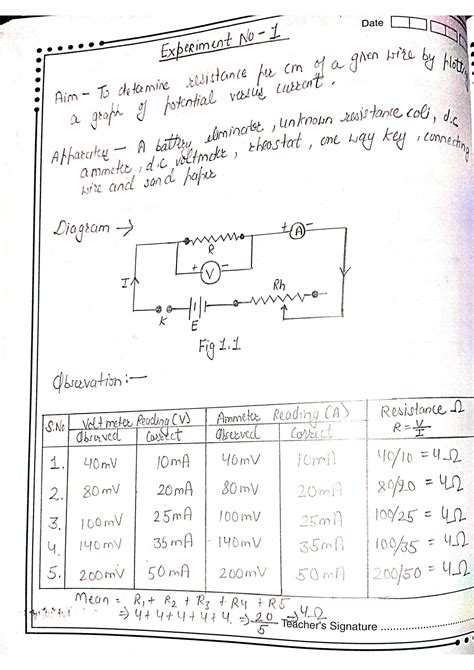 Date
Experiment No - 1
Aim - To detamine resistance per cm of a given wire by plotti
a graph of potential versus current.
Apparatus - A battery eliminator, unknown resistance coli, d.c
ammeter, d.c voltmeter, rheostat, one way key, connecting
wire and sand paper
Diagram →
+ A -
R
+ V -
I
Rh
K
E
Fig 1.1
Observation :-
S.No Voltmeter Reading (V) Ammeter Reading (A) Resistance Ω
Observed Correct Observed Correct R = V/I
1. 40mV 10mA 40mV 10mA 40/10 = 4Ω
2. 80mV 20mA 80mV 20mA 80/20 = 4Ω
3. 100mV 25mA 100mV 25mA 100/25 = 4Ω
4. 140mV 35mA 140mV 35mA 100/35 = 4Ω
5. 200mV 50mA 200mV 50mA 200/50 = 4Ω
Mean = R1 + R2 + R3 + R4 + R5
⇒ 4+4+4+4+4. ⇒ 20/5 ⇒ 4Ω
Teacher's Signature